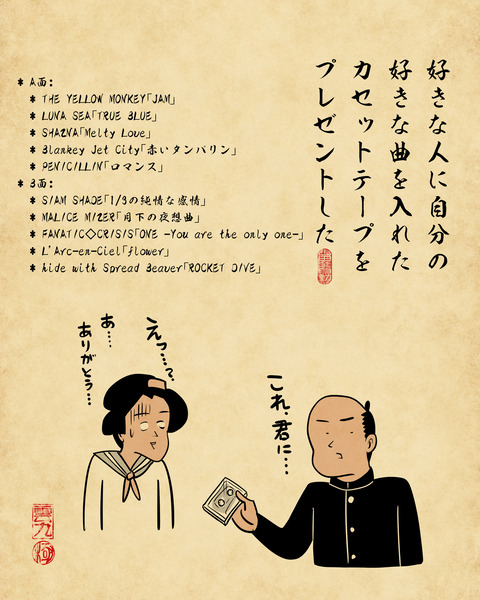 好きな人に自分の
好きな曲を入れた
カセットテープを
プレゼントした
* A面:
* THE YELLOW MONKEY「JAM」
* LUNA SEA「TRUE BLUE」
* SHAZNA「Melty Love」
* Blankey Jet City「赤いタンバリン」
* PENICILLIN「ロマンス」
* B面:
* SIAM SHADE「1/3の純情な感情」
* MALICE MIZER「月下の夜想曲」
* FANATIC◇CRISIS「ONE -You are the only one-」
* L'Arc-en-Ciel「flower」
* hide with Spread Beaver「ROCKET DIVE」
えっ…?
あ…
ありがとう…
これ、君に…